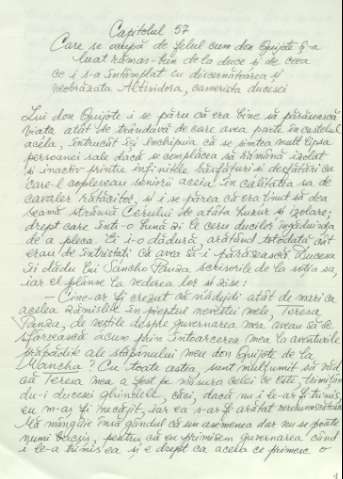 Capitolul 57
Care se ocupă de felul cum don Quijote și-a
luat rămas-bun de la duce și de ceea
ce i s-a întâmplat cu discernătoarea și
neobrăzata Altisidora, camerista ducesei
Lui don Quijote i se păru că era bine să părăsească
viața atât de trândavă de care avea parte în castelul
acela, întrucât își închipuia că se simțea mult lipsa
persoanei sale dacă se complăcea să rămână izolat
și inactiv printre infinitele răsfățuri și desfătări cu
care-l copleseau seniorii aceia în calitatea sa de
cavaler rătăcitor, și i se părea că era ținut să dea
seamă strămă Cerului de atâta huzur și izolare;
drept care într-o bună zi le ceru ducilor îngăduința
de a pleca. Ei i-o dădură, arătând totodată cât
erau de întristați că avea să-i părăsească. Ducesa
îi dădu lui Sancho Panza scrisorile de la soția sa,
iar el plânse la vederea lor și zise:
— Cine-ar fi crezut că nădejdi atât de mari ca
acelea zămislite în pieptul nevestei mele, Teresa
Panza, de veștile despre guvernarea mea aveau să se
sfârsească acum prin întoarcerea mea la aventurile
prăpădite ale stăpânului meu don Quijote de la
Mancha? Cu toate astea, sunt mulțumit să văd
că Teresa mea a fost pe măsura celei ce este, trimițân-
du-i ducesei ghindele, căci, dacă nu i le-ar fi trimis,
eu m-aș fi necăjit, iar ea s-ar fi arătat nerecunoscătoare
Mă mângâie însă gândul că un asemenea dar nu se poate
numi bacșiș, pentru că eu primisem guvernarea când
i le-a trimis ea și e drept ca aceia ce primesc o